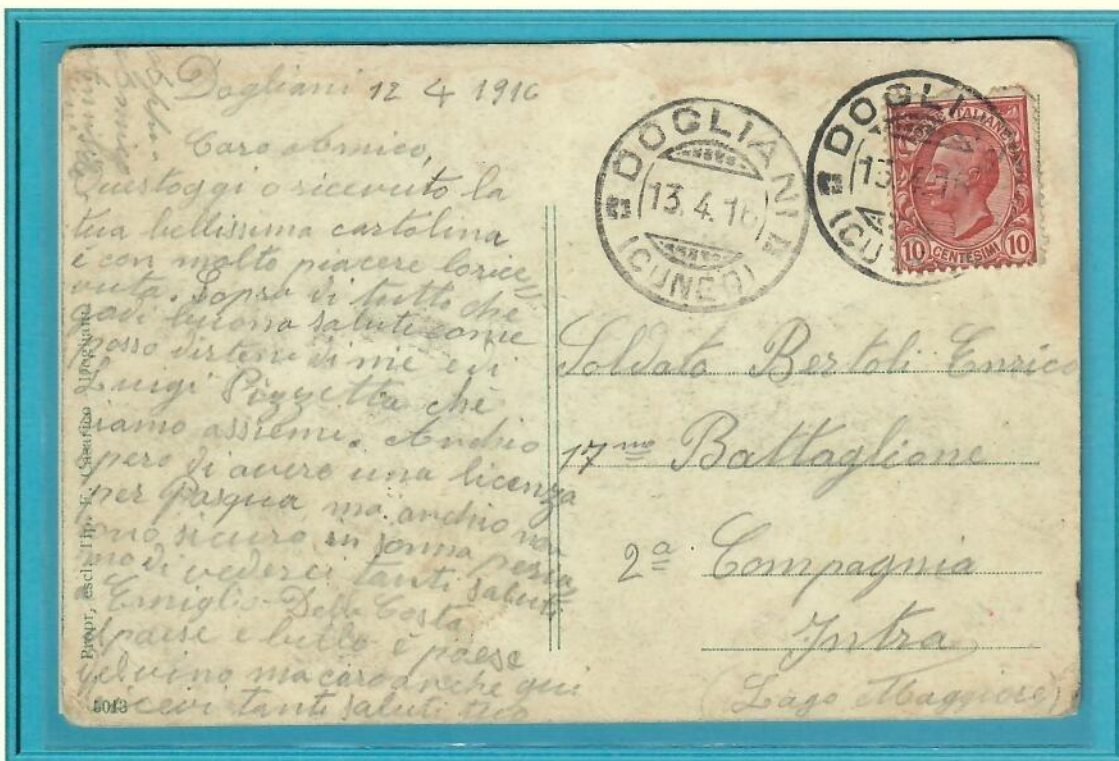 Dogliani 12 4 1916
Caro Amico,
Questoggi o ricevuto la
tua bellissima cartolina
i con molto piacere lorice
vuta. Sopra di tutto che
godi buona saluti come
posso dirtene di me e di
Luigi Pizzetta che
siamo assieme. Anchio
spero di avere una licenza
per Pasqua ma anchio non
sono sicuro in somma
mo di vederci tanti saluti
Emiglio Della Costa
paese e bello è paese
del vino ma caro anche qui
ricevi tanti saluti tuo
DOGLIANI
13.4.16
(CUNEO)
DOGLI
13.4.16
(CU
POSTE ITALIANE
10 CENTESIMI 10
Soldato Bertoli Enrico
17mo Battaglione
2a Compagnia
Intra
(Lago Maggiore)
Propr. escl. Tip. F. Casarico Dogliani
5013